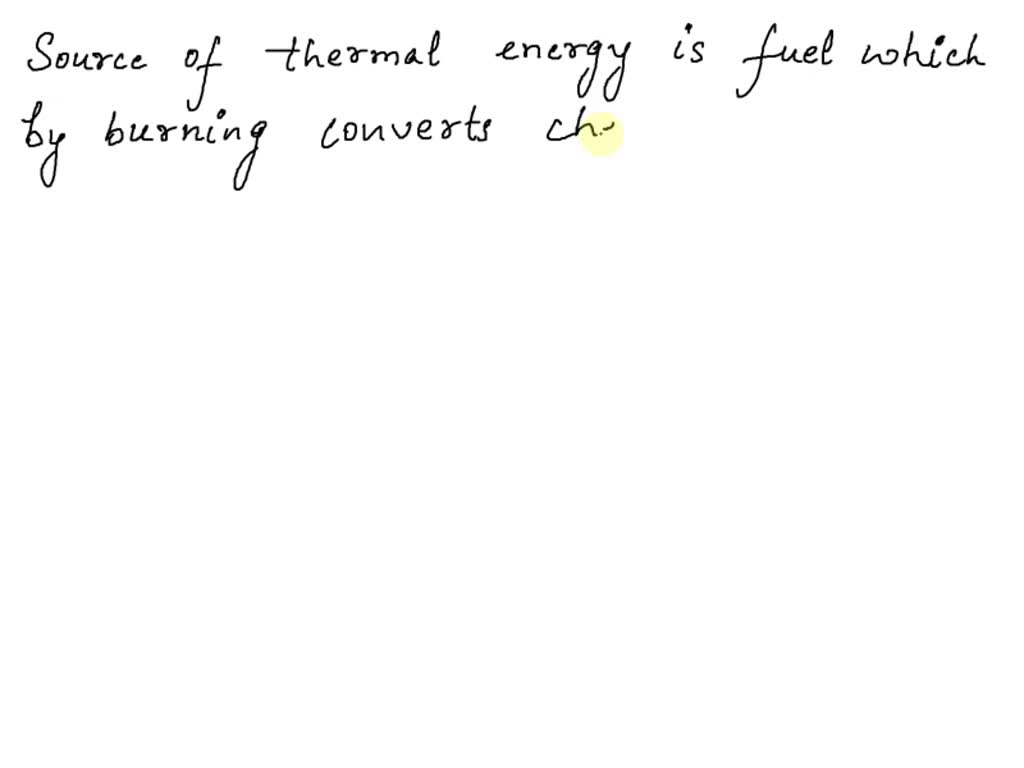 Source of thermal energy is fuel which
by burning converts ch